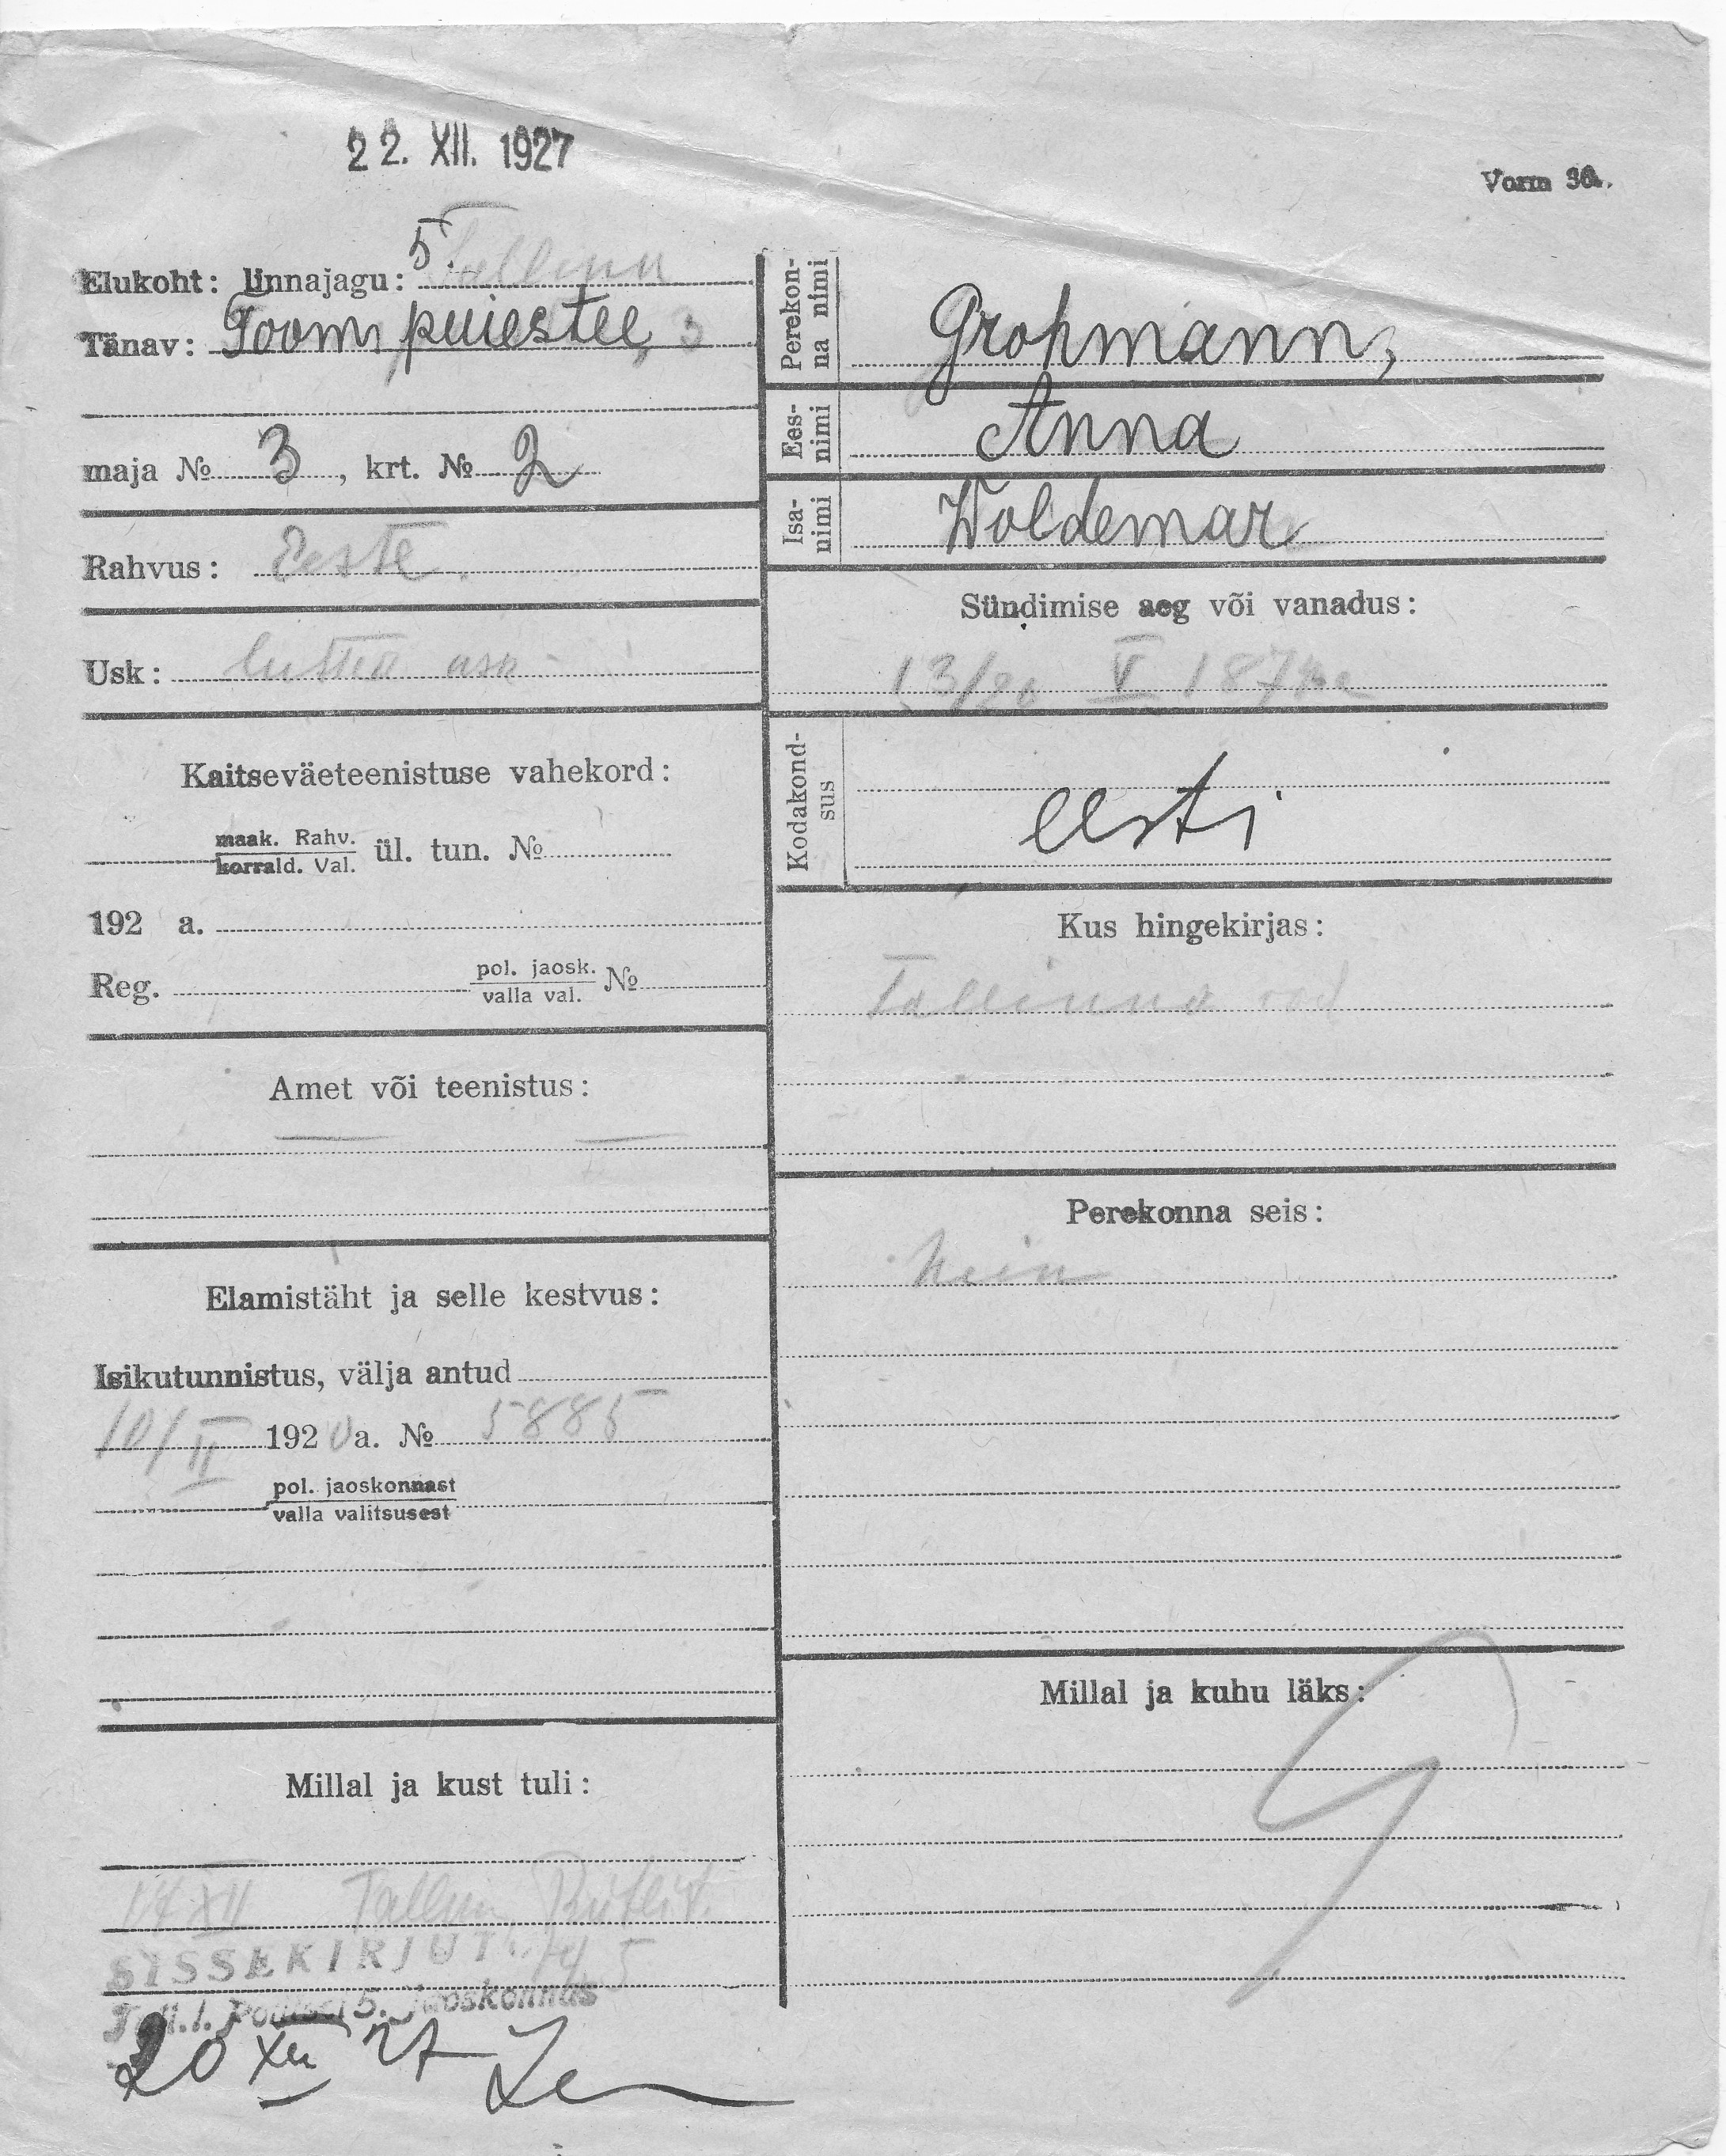 22. XII. 1927
Vorm 30.
Elukoht: linnajagu: 5. Tallinn
Tänav: Toom puiestee, 3
maja № 3, krt. № 2
Rahvus: Eesti.
Usk: luttea usk
Kaitseväeteenistuse vahekord:
maak. Rahv.
korrald. Val. ül. tun. №
192 a.
Reg. pol. jaosk. №
valla val.
Amet või teenistus:
— —
Elamistäht ja selle kestvus:
Isikutunnistus, välja antud
10/II 1920 a. № 5885
pol. jaoskonnast
valla valitsusest
Millal ja kust tuli:
17 XII Tallinn, Rüütli t.
SISSEKIRJUT
Tall. l. Politsei 5. jaoskonnas
20 XII 27
Perekonna nimi
Grohmann,
Eesnimi
Anna
Isanimi
Woldemar
Sündimise aeg või vanadus:
13/26 V 187
Kodakondsus
eesti
Kus hingekirjas:
Tallinna
Perekonna seis:
Millal ja kuhu läks: